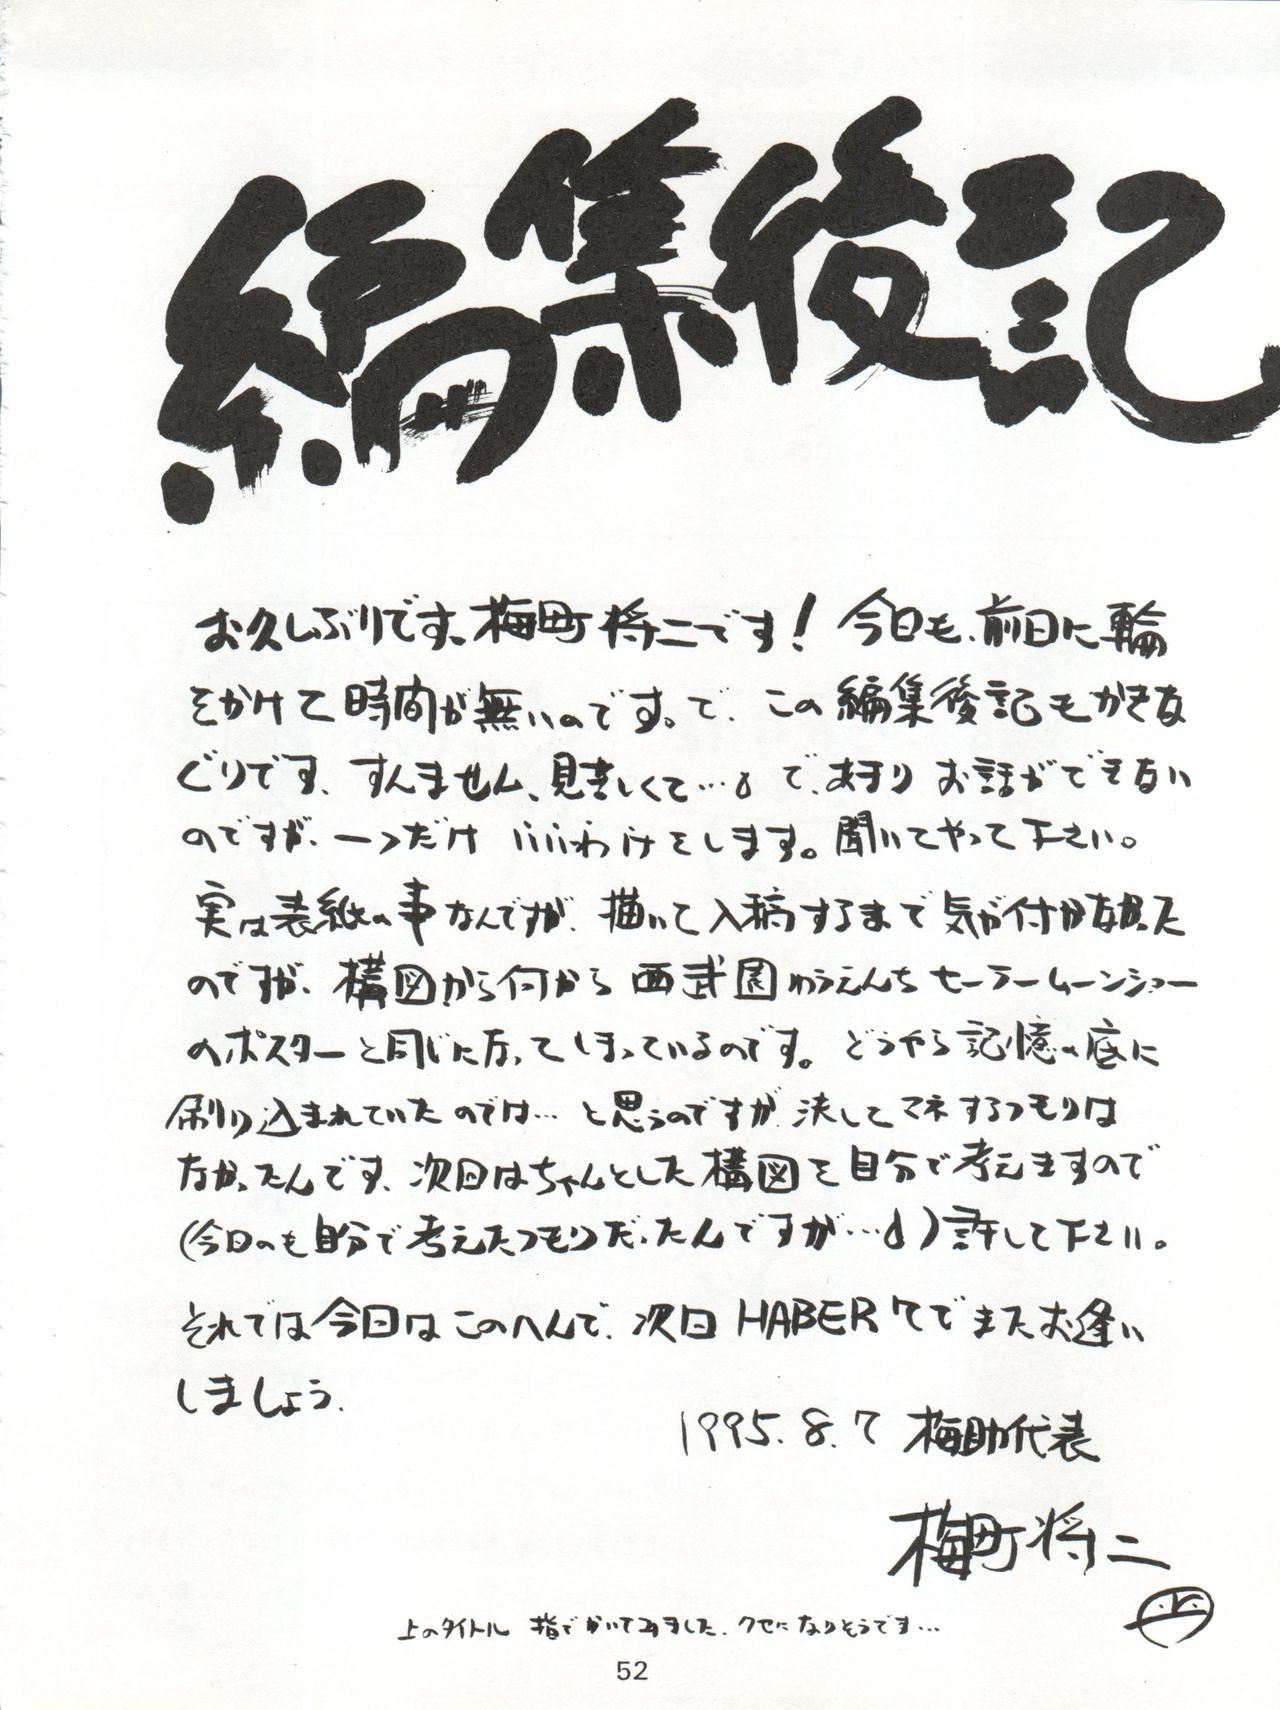 編集後記
お久しぶりです、梅町将二です！今回も、前回に輪
をかけて時間が無いのです。で、この編集後記もかきな
ぐりです、すんません、見苦しくて…。で、あまりお話ができない
のですが、一つだけいいわけをします。聞いてやって下さい。
実は表紙の事なんですが、描いて入稿するまで気が付かなかった
のですが、構図から何から西武園ゆうえんちセーラームーンショー
のポスターと同じになってしまっているのです。どうやら記憶の底に
刷り込まれていたのでは…と思うのですが、決してマネするつもりは
なかったんです、次回はちゃんとした構図を自分で考えますので
(今回のも自分で考えたつもりだったんですが…)許して下さい。
それでは今回はこのへんで、次回HABER7でまたお逢い
しましょう、
1995.8.7 梅助代表
梅町将二
上のタイトル 指でかいてみました、クセになりそうです…
52